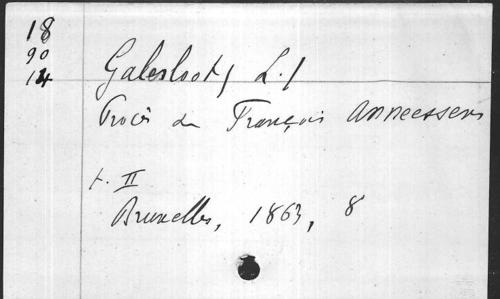 18
90
14
Galesloot, L./
Procès de François Anneessens
t. II
Bruxelles, 1863, 8